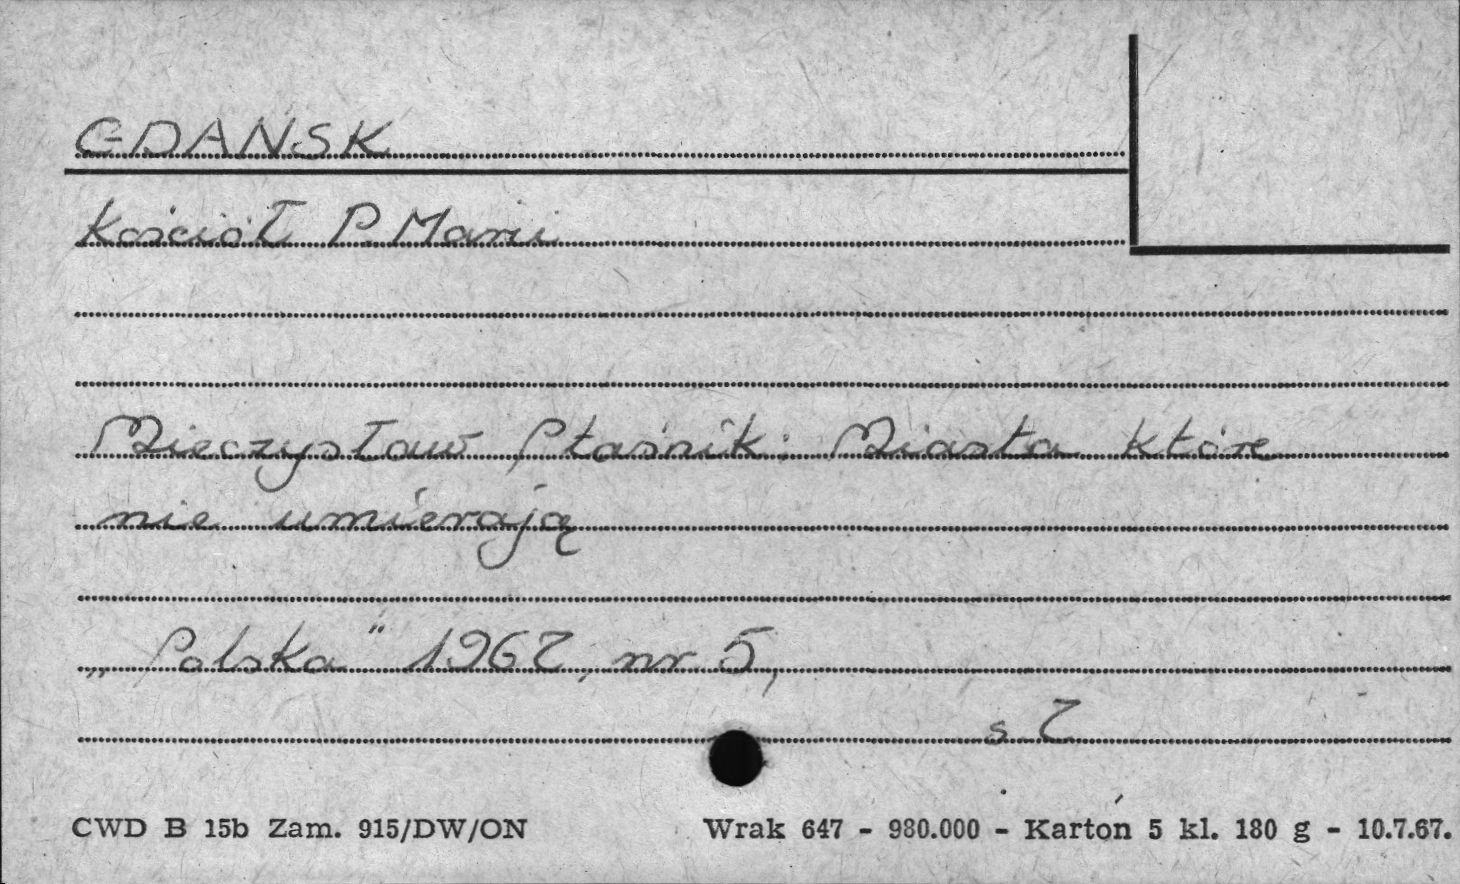 GDAŃSK
Kościół P. Marii
Mieczysław Ptaśnik: Miasta które
nie umierają
„Polska" 1962, nr 5,
s 2
CWD B 15b Zam. 915/DW/ON Wrak 647 - 980.000 - Karton 5 kl. 180 g - 10.7.67.